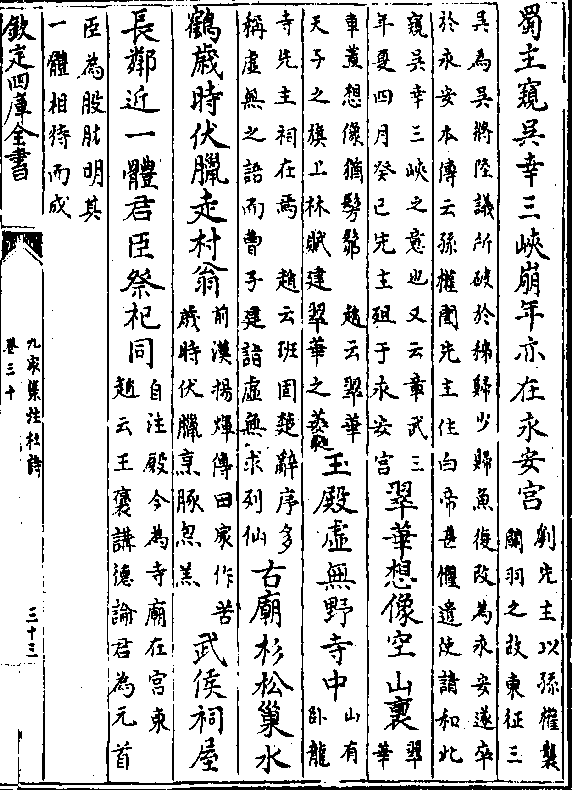 蜀主窺吳幸三峽崩年亦在永安宮
劉先主以孫權襲
關羽之故東征三
吳為吳將陸議所破於秭歸步歸魚復改為永安遂卒
於永安本傳云孫權聞先主住白帝甚懼遣使請和此
窺吳幸三峽之意也又云章武三
年夏四月癸巳先主殂于永安宮
翠華想像空山裏
翠
華
車蓋想像猶髣髴 趙云翠華
天子之旗上林賦建翠華之葳蕤
玉殿虛無野寺中
山有
臥龍
寺先主祠在焉 趙云班固楚辭序多
稱虛無之語而曹子建語虛無求列仙
古廟杉松巢水
鶴歲時伏臘走村翁
前漢揚煇傳田家作苦
歲時伏臘烹豚炰羔
武侯祠屋
長鄰近一體君臣祭祀同
自注殿今為寺廟在宮東
趙云王襃講德論君為元首
臣為股肱明其
一體相待而成
欽定四庫全書
九家集註杜詩
卷三十
三十三